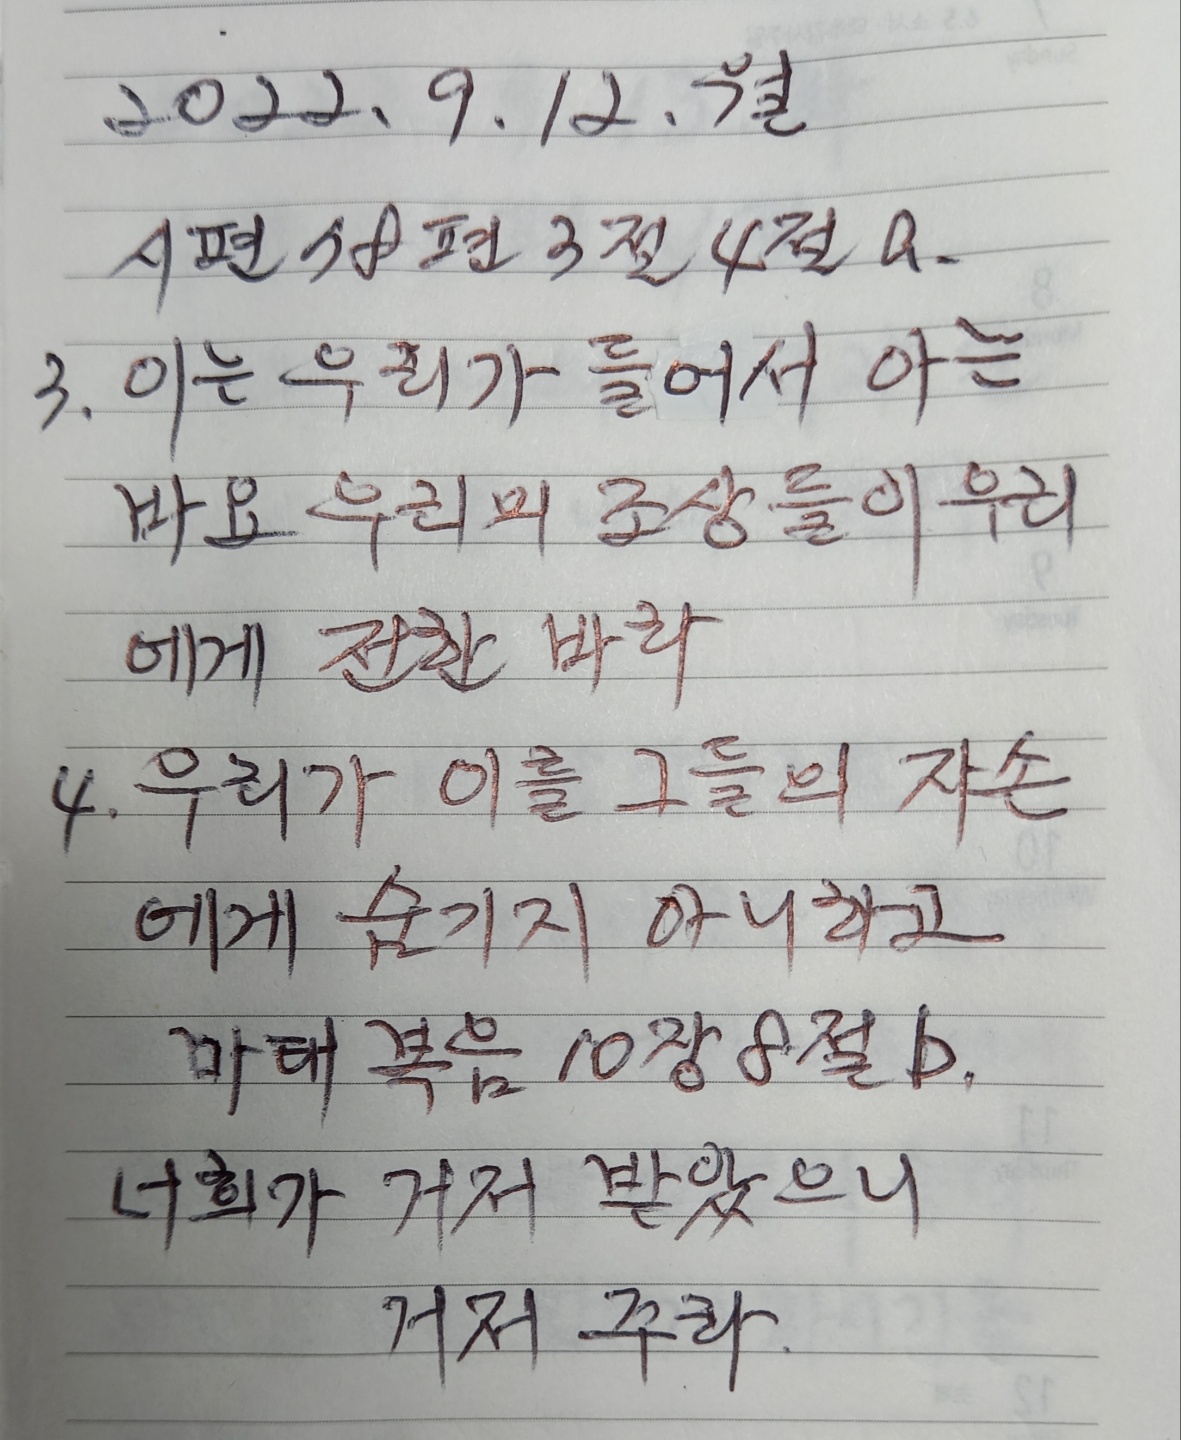 2022. 9. 12.
시편 78편 3절 4절 a.
3. 이는 우리가 들어서 아는
바요 우리의 조상들이 우리
에게 전한 바라
4. 우리가 이를 그들의 자손
에게 숨기지 아니하고
마태복음 10장 8절 b.
너희가 거저 받았으니
거저 주라.